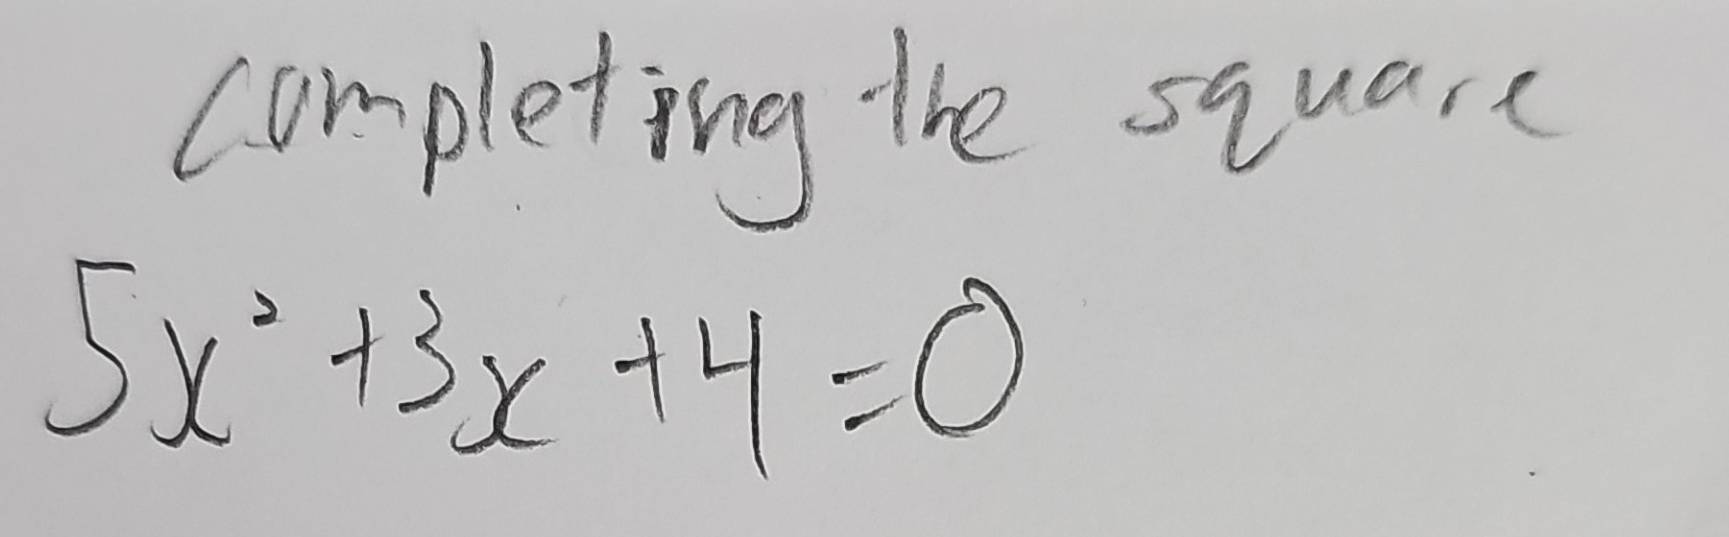 completing the square
5x² +3x +4=0